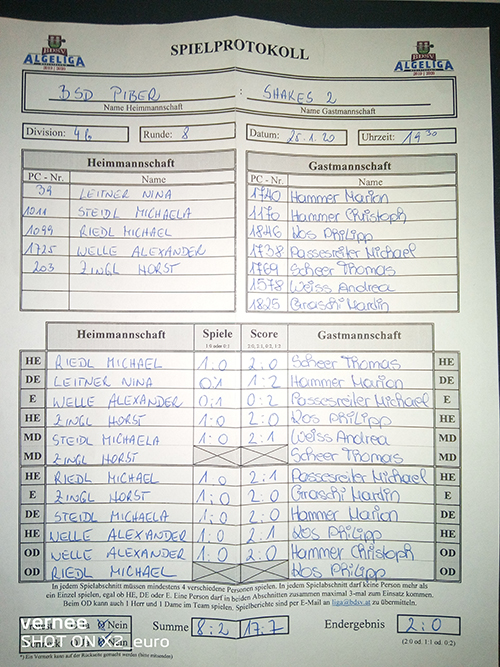 BDSV
ALGELIGA
2019 | 2020
SPIELPROTOKOLL
BDSV
ALGELIGA
2019 | 2020
BSD PIBER : SHAKES 2
Name Heimmannschaft Name Gastmannschaft
Division: 4b Runde: 8 Datum: 25.1.20 Uhrzeit: 19 30
Heimmannschaft Gastmannschaft
PC - Nr. Name PC - Nr. Name
39 LEITNER NINA 1740 Hammer Marion
1011 STEIDL MICHAELA 1170 Hammer Christoph
1099 RIEDL MICHAEL 1846 Kos Philipp
1725 WELLE ALEXANDER 1738 Passesreiter Michael
203 ZINGL HORST 1769 Scheer Thomas
1578 Weiss Andrea
1825 Graschi Martin
Heimmannschaft Spiele Score Gastmannschaft
1:0 oder 0:1 2:0, 2:1, 0:2, 1:2
HE RIEDL MICHAEL 1:0 2:0 Scheer Thomas HE
DE LEITNER NINA 0:1 1:2 Hammer Marion DE
E WELLE ALEXANDER 0:1 0:2 Passesreiter Michael E
HE ZINGL HORST 1:0 2:0 Kos Philipp HE
MD STEIDL MICHAELA 1:0 2:1 Weiss Andrea MD
MD ZINGL HORST Scheer Thomas MD
HE RIEDL MICHAEL 1:0 2:1 Passesreiter Michael HE
E ZINGL HORST 1:0 2:0 Graschi Martin E
DE STEIDL MICHAELA 1:0 2:0 Hammer Marion DE
HE WELLE ALEXANDER 1:0 2:1 Kos Philipp HE
OD WELLE ALEXANDER 1:0 2:0 Hammer Christoph OD
OD RIEDL MICHAEL Kos Philipp OD
In jedem Spielabschnitt müssen mindestens 4 verschiedene Personen spielen. In jedem Spielabschnitt darf keine Person mehr als
ein Einzel spielen, egal ob HE, DE oder E. Eine Person darf in beiden Abschnitten zusammen maximal 3-mal zum Einsatz kommen.
Beim OD kann auch 1 Herr und 1 Dame im Team spielen. Spielberichte sind per E-Mail an liga@bdsv.at zu übermitteln.
Nein Summe 8:2 17:7 Endergebnis 2:0
Nein (2:0 od. 1:1 od. 0:2)
*) Ein Vermerk kann auf der Rückseite gemacht werden (bitte zutreffendes)
vernee
SHOT ON X2_euro